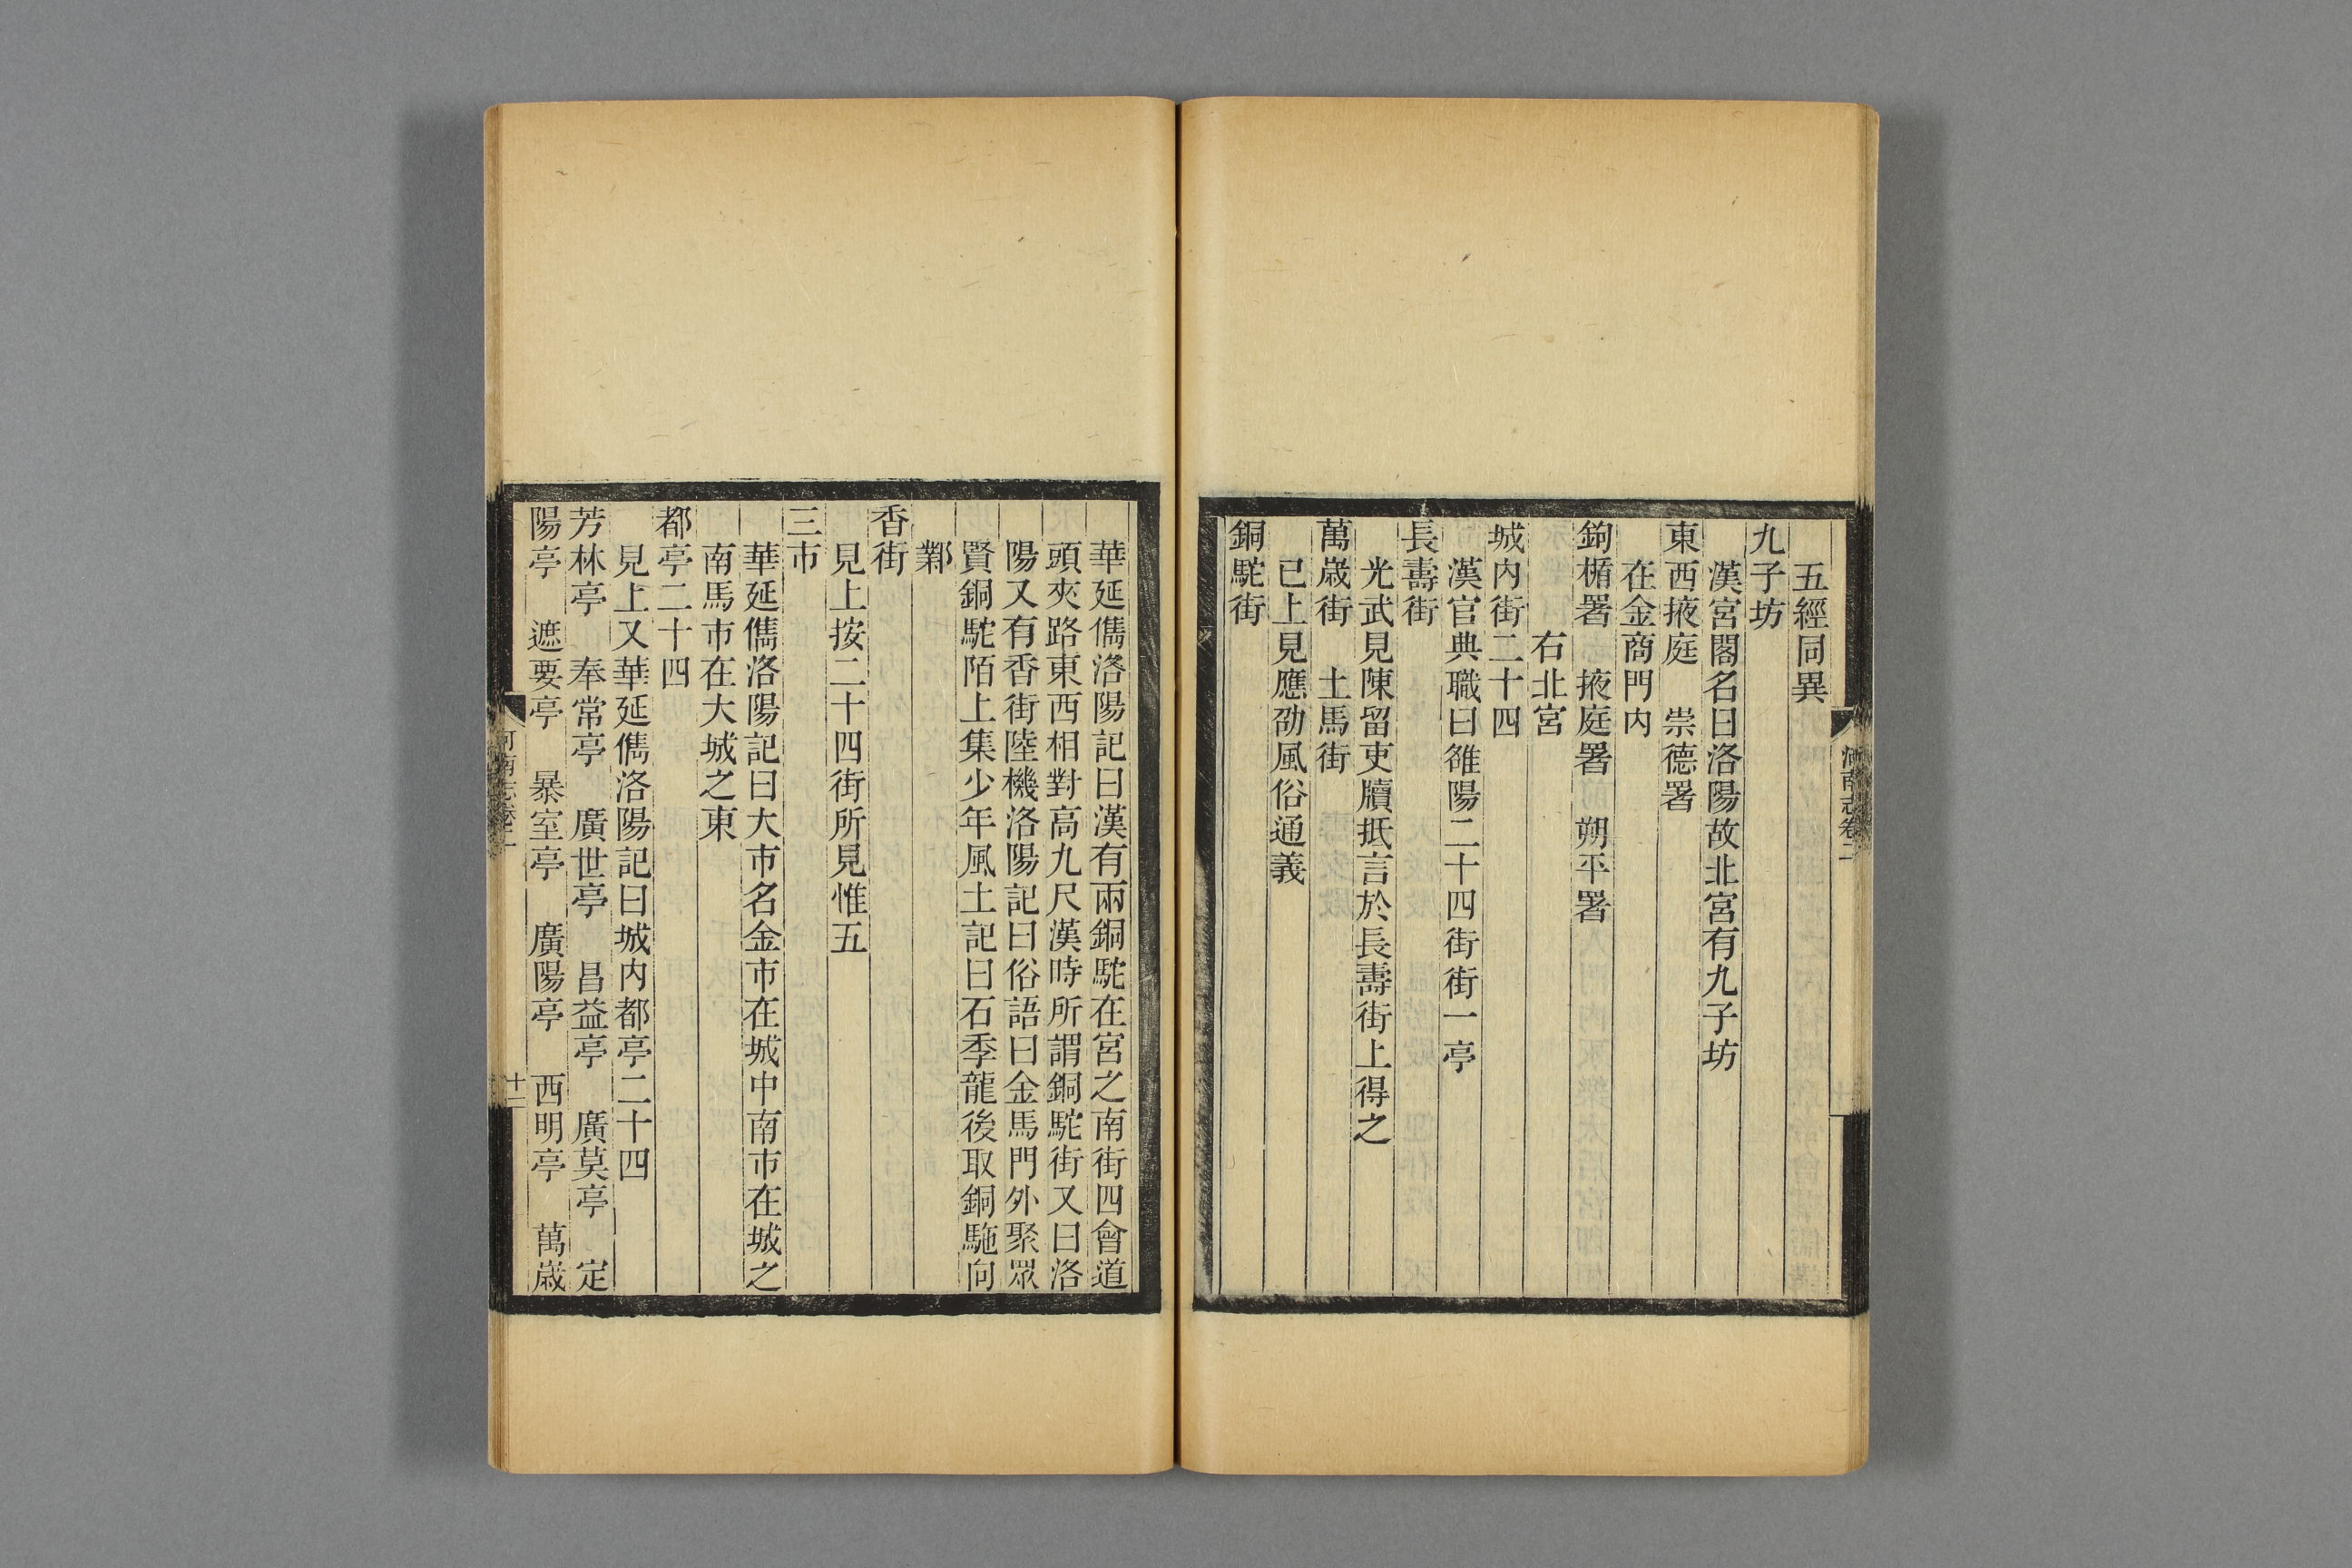 河南志卷二
五經同異
九子坊
漢宮閣名曰洛陽故北宮有九子坊
東西掖庭　崇德署
在金商門内
鉤楯署　掖庭署　朔平署
右北宮
城内街二十四
漢官典職曰雒陽二十四街街一亭
長壽街
光武見陳留吏牘抵言於長壽街上得之
萬歲街　土馬街
已上見應劭風俗通義
銅駝街
華延儁洛陽記曰漢有兩銅駝在宮之南街四會道
頭夾路東西相對高九尺漢時所謂銅駝街又曰洛
陽又有香街陸機洛陽記曰俗語曰金馬門外聚眾
賢銅駝陌上集少年風土記曰石季龍後取銅駞向
鄴
香街
見上按二十四街所見惟五
三市
華延儁洛陽記曰大市名金市在城中南市在城之
南馬市在大城之東
都亭二十四
見上又華延儁洛陽記曰城内都亭二十四
芳林亭　奉常亭　廣世亭　昌益亭　廣莫亭　定
陽亭　遮要亭　暴室亭　廣陽亭　西明亭　萬歲
河南志卷二
十二